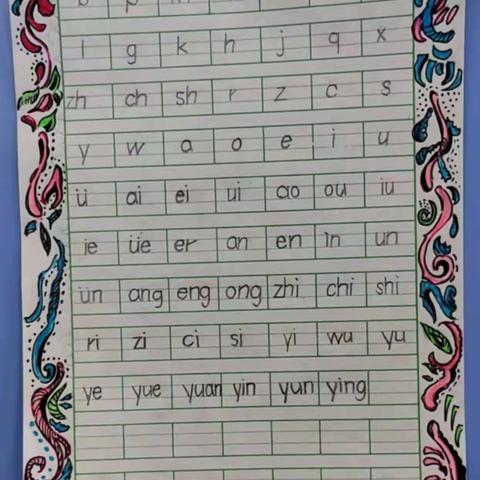 b p m
l g k h j q x
zh ch sh r z c s
y w a o e i u
ü ai ei ui ao ou iu
ie üe er an en in un
ün ang eng ong zhi chi shi
ri zi ci si yi wu yu
ye yue yuan yin yun ying